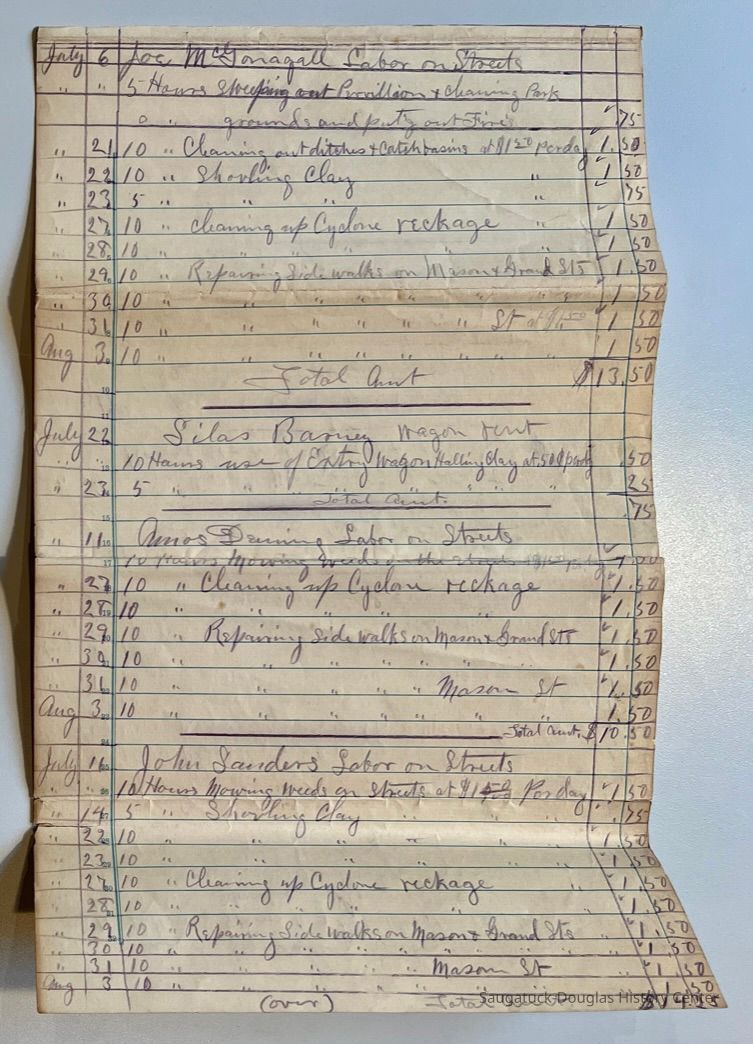 July 6 Joe McGonagall Labor on Streets
" " 5 Hours Sweeping out Parvillion & cleaning Park
" " grounds and putg out Fires .75
" 21 10 " Cleaning out ditches & Catchbasins at $1.50 per day 1.50
" 22 10 " Shovling Clay " 1.50
" 23 5 " " " " 75
" 27 10 " cleaning up Cyclone reckage " 1.50
" 28 10 " " " " " 1.50
" 29 10 " Repairing Side walks on Mason & Grand Sts 1.50
" 30 10 " " " " " " 1.50
" 31 10 " " " " " St at $1.50 1.50
Aug 3 10 " " " " " " " 1.50
Total Amt $13.50
July 22 Silas Barney wagon rent
" " 10 Hours use of wagon Halling Clay at .50 per day .50
" 23 5 " " " " " " 25
Total Amt. .75
" 11 Amos Deming Labor on Streets
10 Hours Mowing Weeds on the Streets 1.50
" 27 10 " Cleaning up Cyclone reckage 1.50
" 28 10 " " " " 1.50
" 29 10 " Repairing Side walks on Mason & Grand Sts 1.50
" 30 10 " " " " " " " 1.50
" 31 10 " " " " Mason St 1.50
Aug 3 10 " " " " " " 1.50
Total Amt. $10.50
July John Sanders Labor on Streets
" " 10 Hours Mowing weeds on Streets at $1.50 Per day 1.50
" 14 5 " Shovling Clay " " .75
" 22 10 " " " " 1.50
" 23 10 " " " " " 1.50
" 27 10 " Cleaning up Cyclone reckage " 1.50
" 28 10 " " " " " 1.50
" 29 10 " Repairing Side walks on Mason & Grand Sts 1.50
" 30 10 " " " " " " " 1.50
" 31 10 " " " " Mason St " 1.50
Aug 3 10 " " " " " " 1.50
(over) Total
Saugatuck-Douglas History Center